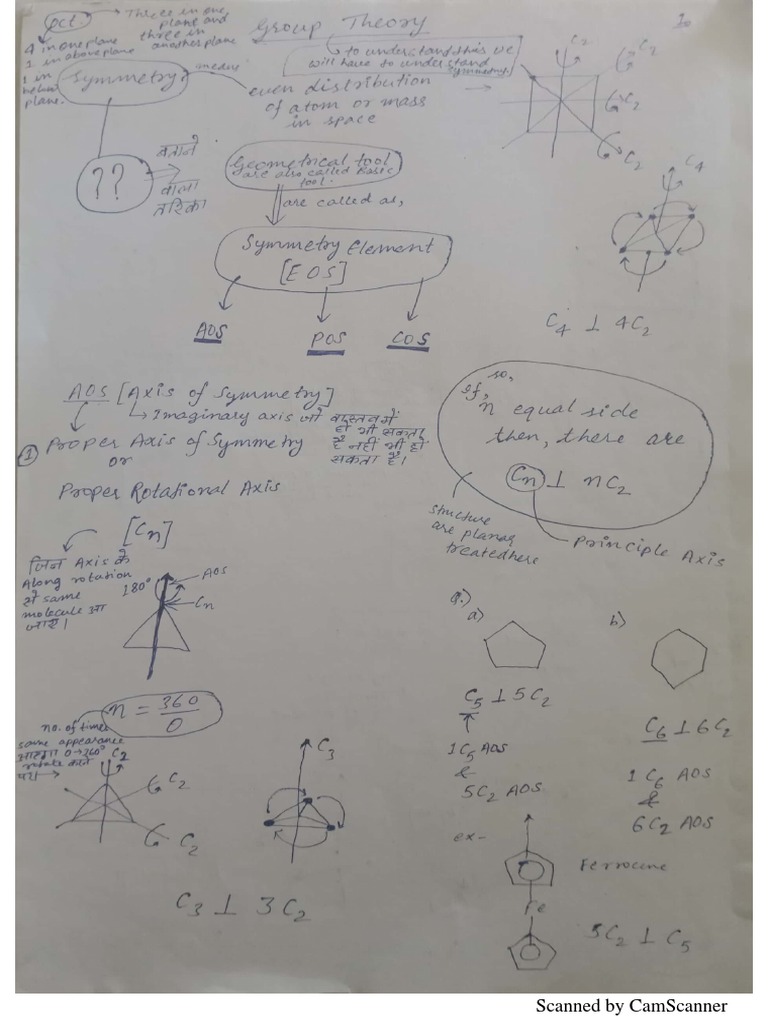 oct
Three in one
plane and
three in
another plane
4 in one plane
1 in above plane
1 in
below
plane.
Group Theory
1.
to understand this we
will have to understand
symmetry.
Symmetry
means
even distribution
of atom or mass
in space
??
बताने
वाला
तरिका
Geometrical tool
are also called Basic
tool.
are called as,
Symmetry Element
[EOS]
AOS
POS
COS
C2
C2
C2
C2
C4
C4 ⊥ 4C2
AOS [Axis of Symmetry]
Imaginary axis जो वास्तव में
हो भी सकता
है नहीं भी हो
सकता है।
① Proper Axis of Symmetry
or
Proper Rotational Axis
[Cn]
जिन Axis के
Along rotation
से same
molecule आ
जाए।
180°
AOS
Cn
so,
if,
n equal side
then, there are
Cn ⊥ nC2
structure
are planar
treated here
Principle Axis
n = 360/θ
no. of times
same appearance
0→360°
rotate करने
पर
C2
C2
C2
C3
C3 ⊥ 3C2
Q.)
a)
b)
C5 ⊥ 5C2
1C5 AOS
&
5C2 AOS
C6 ⊥ 6C2
1 C6 AOS
&
6C2 AOS
ex-
Ferrocene
Fe
5C2 ⊥ C5
Scanned by CamScanner